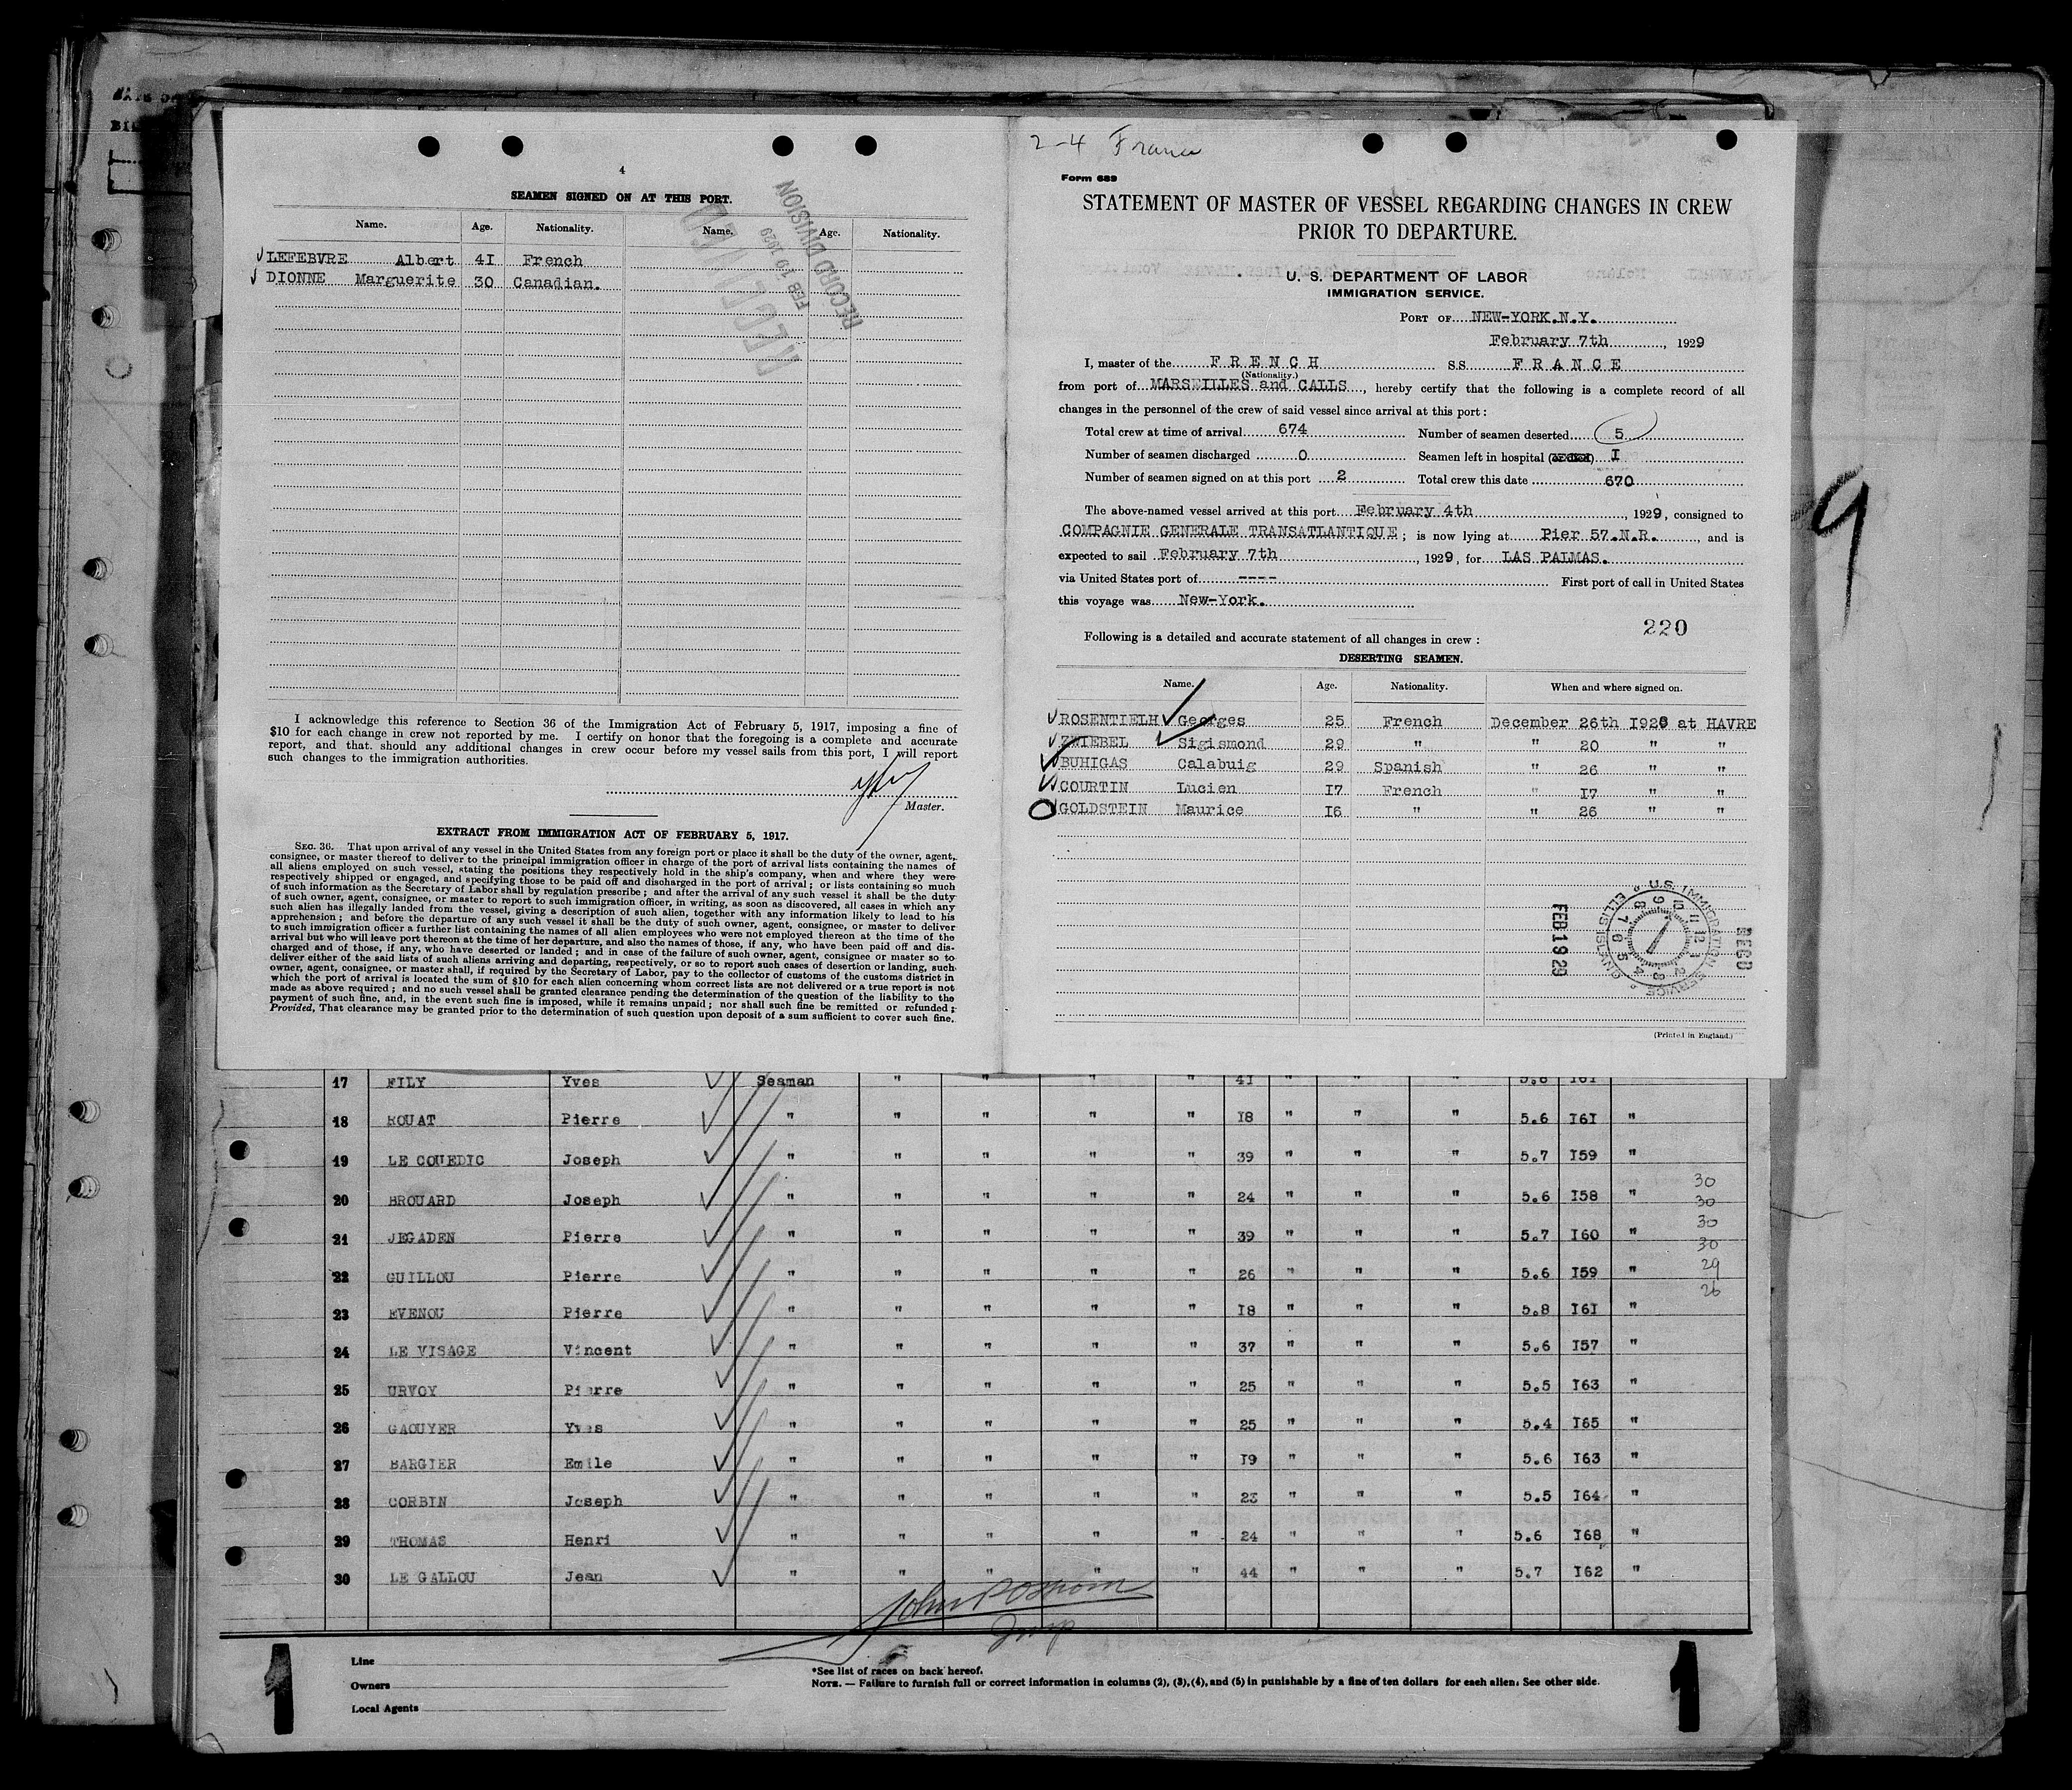 4
SEAMEN SIGNED ON AT THIS PORT.
Name. Age. Nationality. Name. Age. Nationality.
LEFEBVRE Albert 4I French
DIONNE Marguerite 30 Canadian.
RECORD DIVISION
FEB 19 1929
I acknowledge this reference to Section 36 of the Immigration Act of February 5, 1917, imposing a fine of
$10 for each change in crew not reported by me. I certify on honor that the foregoing is a complete and accurate
report, and that. should any additional changes in crew occur before my vessel sails from this port, I will report
such changes to the immigration authorities.
Master.
EXTRACT FROM IMMIGRATION ACT OF FEBRUARY 5, 1917.
SEC. 36. That upon arrival of any vessel in the United States from any foreign port or place it shall be the duty of the owner, agent,
consignee, or master thereof to deliver to the principal immigration officer in charge of the port of arrival lists containing the names of
all aliens employed on such vessel, stating the positions they respectively hold in the ship's company, when and where they were
respectively shipped or engaged, and specifying those to be paid off and discharged in the port of arrival; or lists containing so much
of such information as the Secretary of Labor shall by regulation prescribe; and after the arrival of any such vessel it shall be the duty
of such owner, agent, consignee, or master to report to such immigration officer, in writing, as soon as discovered, all cases in which any
such alien has illegally landed from the vessel, giving a description of such alien, together with any information likely to lead to his
apprehension; and before the departure of any such vessel it shall be the duty of such owner, agent, consignee, or master to deliver
to such immigration officer a further list containing the names of all alien employees who were not employed thereon at the time of the
arrival but who will leave port thereon at the time of her departure, and also the names of those, if any, who have been paid off and dis-
charged and of those, if any, who have deserted or landed; and in case of the failure of such owner, agent, consignee or master so to
deliver either of the said lists of such aliens arriving and departing, respectively, or so to report such cases of desertion or landing, such
owner, agent, consignee, or master shall, if required by the Secretary of Labor, pay to the collector of customs of the customs district in
which the port of arrival is located the sum of $10 for each alien concerning whom correct lists are not delivered or a true report is not
made as above required; and no such vessel shall be granted clearance pending the determination of the question of the liability to the
payment of such fine, and, in the event such fine is imposed, while it remains unpaid; nor shall such fine be remitted or refunded;
Provided, That clearance may be granted prior to the determination of such question upon deposit of a sum sufficient to cover such fine.
2-4 France
Form 689
STATEMENT OF MASTER OF VESSEL REGARDING CHANGES IN CREW
PRIOR TO DEPARTURE.
U. S. DEPARTMENT OF LABOR
IMMIGRATION SERVICE.
PORT OF NEW-YORK.N.Y.
February 7th, 1929
I, master of the FRENCH SS FRANCE
(Nationality.)
from port of MARSEILLES and CALLS, hereby certify that the following is a complete record of all
changes in the personnel of the crew of said vessel since arrival at this port:
Total crew at time of arrival 674 Number of seamen deserted 5
Number of seamen discharged 0 Seamen left in hospital I
Number of seamen signed on at this port 2 Total crew this date 670
The above-named vessel arrived at this port February 4th, 1929, consigned to
COMPAGNIE GENERALE TRANSATLANTIQUE; is now lying at Pier 57.N.R., and is
expected to sail February 7th, 1929, for LAS PALMAS.
via United States port of ---- First port of call in United States
this voyage was New-York.
220
Following is a detailed and accurate statement of all changes in crew:
DESERTING SEAMEN.
Name. Age. Nationality. When and where signed on.
ROSENTIELH Georges 25 French December 26th I928 at HAVRE
ZWIEBEL Sigismond 29 " " 20 " "
BUHIGAS Calabuig 29 Spanish " 26 " "
COURTIN Lucien I7 French " I7 " "
GOLDSTEIN Maurice I6 " " 26 " "
FEB 19 29
U.S. IMMIGRATION SERVICE ELLIS ISLAND
RECD
(Printed in England.)
9
17 FILY Yves Seaman " " " " 4I " " " 5.6 I6I
18 ROUAT Pierre " " " " " I8 " " " 5.6 I6I "
19 LE COUEDIC Joseph " " " " " 39 " " " 5.7 I59 "
20 BROUARD Joseph " " " " " 24 " " " 5.6 I58 "
21 JEGADEN Pierre " " " " " 39 " " " 5.7 I60 "
22 GUILLOU Pierre " " " " " 26 " " " 5.6 I59 "
23 EVENOU Pierre " " " " " I8 " " " 5.8 I6I "
24 LE VISAGE Vincent " " " " " 37 " " " 5.6 I57 "
25 URVOY Pierre " " " " " 25 " " " 5.5 I63 "
26 GAOUYER Yves " " " " " 25 " " " 5.4 I65 "
27 BARGIER Emile " " " " " I9 " " " 5.6 I63 "
28 CORBIN Joseph " " " " " 23 " " " 5.5 I64 "
29 THOMAS Henri " " " " " 24 " " " 5.6 I68 "
30 LE GALLOU Jean " " " " " 44 " " " 5.7 I62 "
30
30
30
30
29
26
Line
Owners
Local Agents
*See list of races on back hereof.
NOTE. — Failure to furnish full or correct information in columns (2), (3), (4), and (5) in punishable by a fine of ten dollars for each alien. See other side.
1
1